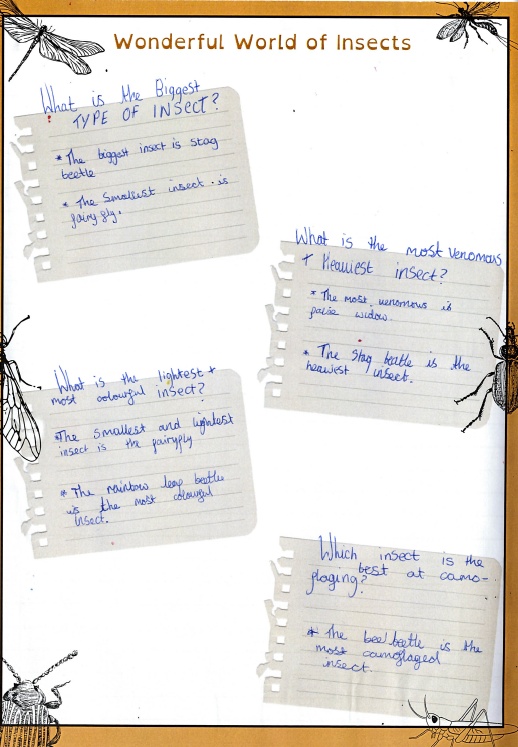 Wonderful World of Insects
What is the Biggest
TYPE OF INSECT?
* The biggest insect is stag
beetle
* The Smallest insect is
fairy fly.
What is the most venomous
+ Heaviest insect?
* The most venomous is
widow.
* The Stag beetle is the
heaviest insect.
What is the lightest +
most colourful insect?
* The smallest and lightest
insect is the fairyfly
* The rainbow leaf beetle
is the most colourful
insect.
Which insect is the
best at camo-
flaging?
* The bee beetle is the
most camoflaged
insect.